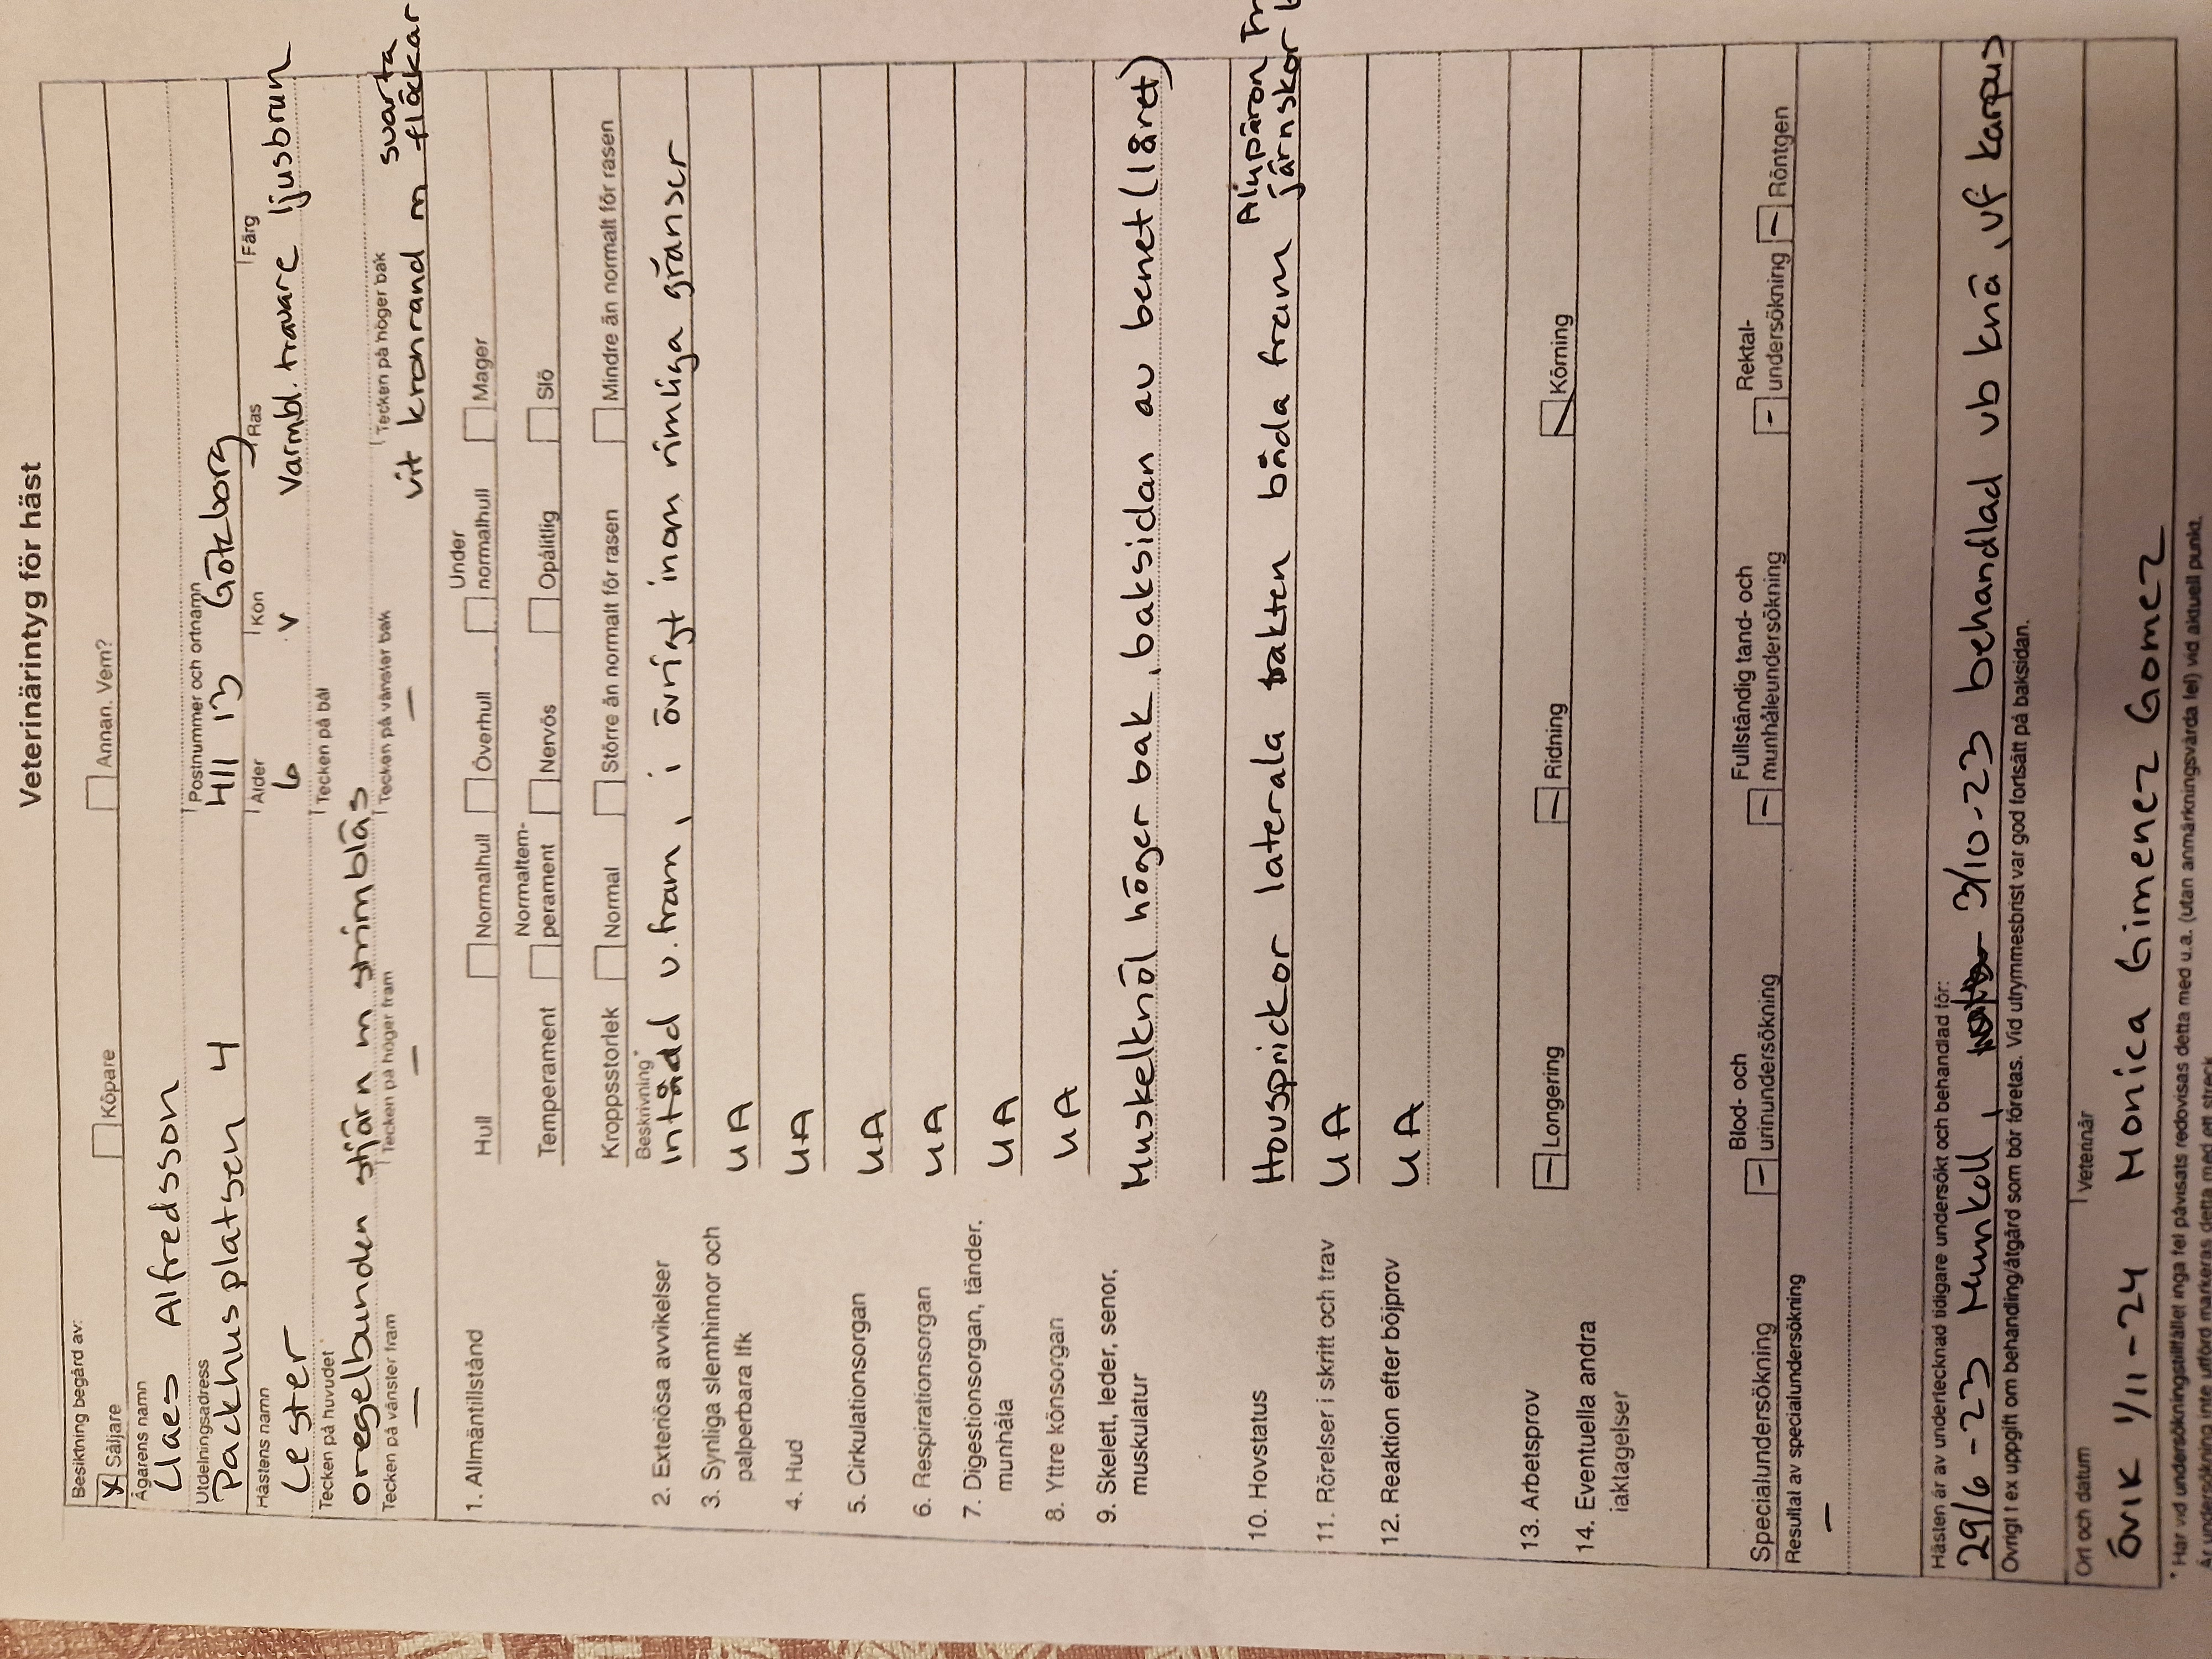 Veterinärintyg för häst
Besiktning begärd av:
x Säljare Köpare Annan. Vem?
Ägarens namn
Claes Alfredsson
Utdelningsadress Postnummer och ortnamn
Packhusplatsen 4 411 13 Götborg
Hästens namn Ålder Kön Ras Färg
Lester 6 v Varmbl. travare ljusbrun
Tecken på huvudet Tecken på bål
oregelbunden stjärn m strimbläs
Tecken på vänster fram Tecken på höger fram Tecken på vänster bak Tecken på höger bak
— — — vit kronrand m svarta fläckar
1. Allmäntillstånd Hull Normalhull Överhull Under normalhull Mager
Temperament Normaltem-perament Nervös Opålitlig Slö
Kroppsstorlek Normal Större än normalt för rasen Mindre än normalt för rasen
Beskrivning*
2. Exteriösa avvikelser intådd v. fram, i övrigt inom rimliga gränser
3. Synliga slemhinnor och UA
palperbara lfk
4. Hud UA
5. Cirkulationsorgan UA
6. Respirationsorgan UA
7. Digestionsorgan, tänder, UA
munhåla
8. Yttre könsorgan UA
9. Skelett, leder, senor, Muskelknöl höger bak, baksidan av benet (låret)
muskulatur
10. Hovstatus Hovsprickor laterala trakten båda fram Alupäron järnskor
11. Rörelser i skritt och trav UA
12. Reaktion efter böjprov UA
13. Arbetsprov – Longering – Ridning Körning
14. Eventuella andra
iaktagelser
Specialundersökning – Blod- och urinundersökning – Fullständig tand- och munhåleundersökning – Rektal-undersökning – Röntgen
Resultal av specialundersökning
—
Hästen är av undertecknad tidigare undersökt och behandlad för:
29/6-23 Munkoll, 3/10-23 behandlad vb knä, vf karpus
Övrigt t ex uppgift om behandling/åtgärd som bör företas. Vid utrymmesbrist var god fortsätt på baksidan.
Ort och datum Veterinär
Övik 1/11-24 Monica Gimenez Gomez
* Har vid undersökningstillfället inga fel påvisats redovisas detta med u.a. (utan anmärkningsvärda fel) vid aktuell punkt.
Är undersökning inte utförd markeras detta med ett streck.